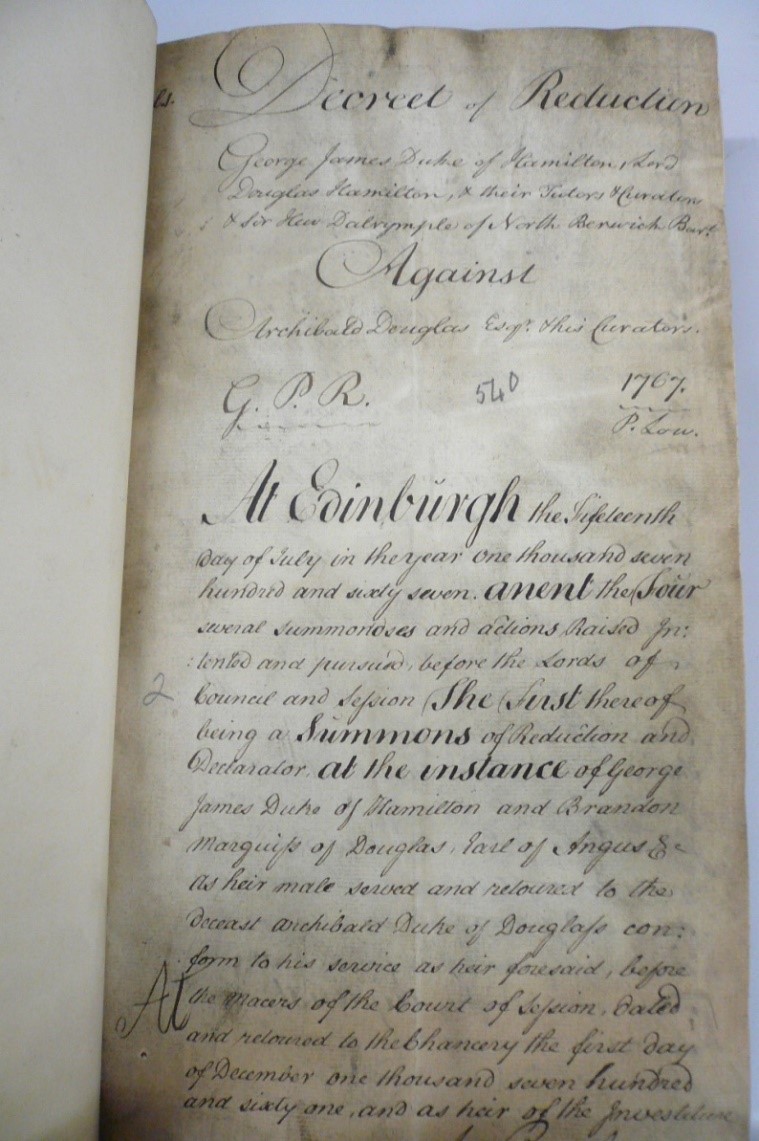 ls.
Decreet of Reduction
George James Duke of Hamilton, Lord
Douglas Hamilton, & their Tutors & Curators
& Sir Hew Dalrymple of North Berwick Bart.
Against
Archibald Douglas Esqr. & his Curators.
G. P. R. 540 1767.
P. Low.
At Edinburgh the Fifeteenth
day of July in the year one thousand seven
hundred and sixty seven. anent the Four
several summondses and actions Raised In:
:tented and pursued, before the Lords of
2 Council and Session (The First thereof
being a Summons of Reduction and
Declarator, at the instance of George
James Duke of Hamilton and Brandon
Marquiss of Douglas, Earl of Angus &c
as heir male served and retoured to the
deceast Archibald Duke of Douglass con:
form to his service as heir foresaid, before
At the macers of the Court of Session, dated
and retoured to the Chancery the first day
of December one thousand seven hundred
and sixty one, and as heir of the Investiture